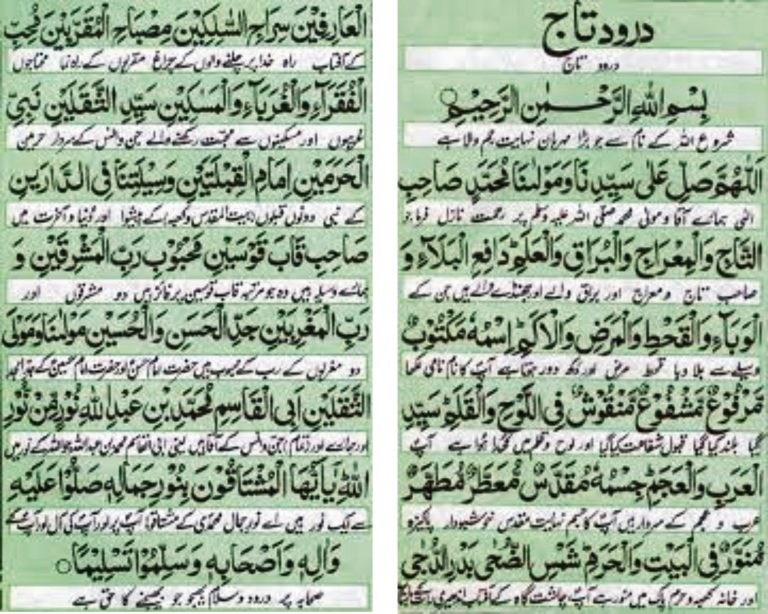 درود تاج
درود تاج
بِسْمِ اللهِ الرَّحْمٰنِ الرَّحِيْمِ
شروع اللہ کے نام سے جو بڑا مہربان نہایت رحم والا ہے
اَللّٰهُمَّ صَلِّ عَلٰى سَيِّدِنَا وَمَوْلٰنَا مُحَمَّدٍ صَاحِبِ
الٰہی ہمارے آقا و مولیٰ محمد صلی اللہ علیہ وسلم پر رحمت نازل فرما جو
التَّاجِ وَالْمِعْرَاجِ وَالْبُرَاقِ وَالْعَلَمِ دَافِعِ الْبَلَآءِ وَ
صاحب تاج و معراج اور براق والے اور جھنڈے والے ہیں جن کے
الْوَبَآءِ وَالْقَحْطِ وَالْمَرَضِ وَالْاَلَمِ اِسْمُهٗ مَكْتُوْبٌ
وسیلے سے بلا وبا قحط مرض اور دکھ دور ہوتا ہے آپ کا نام نامی لکھا
مَّرْفُوْعٌ مَّشْفُوْعٌ مَّنْقُوْشٌ فِى اللَّوْحِ وَالْقَلَمِ سَيِّدِ
گیا بلند کیا گیا قبول شفاعت کیا گیا اور لوح و قلم میں کھدا ہوا ہے آپ
الْعَرَبِ وَالْعَجَمِ جِسْمُهٗ مُقَدَّسٌ مُّعَطَّرٌ مُّطَهَّرٌ
عرب و عجم کے سردار ہیں آپ کا جسم نہایت مقدس خوشبودار پاکیزہ
مُّنَوَّرٌ فِى الْبَيْتِ وَالْحَرَمِ شَمْسِ الضُّحٰى بَدْرِ الدُّجٰى
اور خانہ کعبہ و حرم پاک میں منور ہے آپ چاشت گاہ کے آفتاب اندھیری رات کے
الْعَارِفِيْنَ سِرَاجِ السَّالِكِيْنَ مِصْبَاحِ الْمُقَرَّبِيْنَ مُحِبِّ
کے آفتاب راہ خدا پر چلنے والوں کے چراغ مقربوں کے راہ نما محتاجوں
الْفُقَرَآءِ وَالْغُرَبَآءِ وَالْمَسٰكِيْنِ سَيِّدِ الثَّقَلَيْنِ نَبِىِّ
غریبوں اور مسکینوں سے محبت رکھنے والے جن و انس کے سردار حرمین
الْحَرَمَيْنِ اِمَامِ الْقِبْلَتَيْنِ وَسِيْلَتِنَا فِى الدَّارَيْنِ
کے نبی دونوں قبلوں (بیت المقدس و کعبہ) کے پیشوا اور دنیا و آخرت میں
صَاحِبِ قَابَ قَوْسَيْنِ مَحْبُوْبِ رَبِّ الْمَشْرِقَيْنِ وَ
ہمارے وسیلہ ہیں وہ جو مرتبہ قاب قوسین پر فائز ہیں دو مشرقوں اور
رَبِّ الْمَغْرِبَيْنِ جَدِّ الْحَسَنِ وَالْحُسَيْنِ مَوْلٰنَا وَمَوْلَى
دو مغربوں کے رب کے محبوب ہیں حضرت امام حسن اور حضرت امام حسین کے جد امجد
الثَّقَلَيْنِ اَبِى الْقَاسِمِ مُحَمَّدِ بْنِ عَبْدِ اللهِ نُوْرٍ مِّنْ نُّوْرِ
اور ہمارے اور (تمام) جن و انس کے آقا ہیں یعنی ابی القاسم محمد بن عبداللہ جو اللہ کے نور میں
اللهِ يٰاَيُّهَا الْمُشْتَاقُوْنَ بِنُوْرِ جَمَالِهٖ صَلُّوْا عَلَيْهِ
سے ایک نور ہیں اے نور جمال محمدی کے مشتاقو! آپ پر اور آپ کی آل اور آپ کے
وَاٰلِهٖ وَاَصْحَابِهٖ وَسَلِّمُوْا تَسْلِيْمًا
صحابہ پر درود و سلام بھیجو جو بھیجنے کا حق ہے